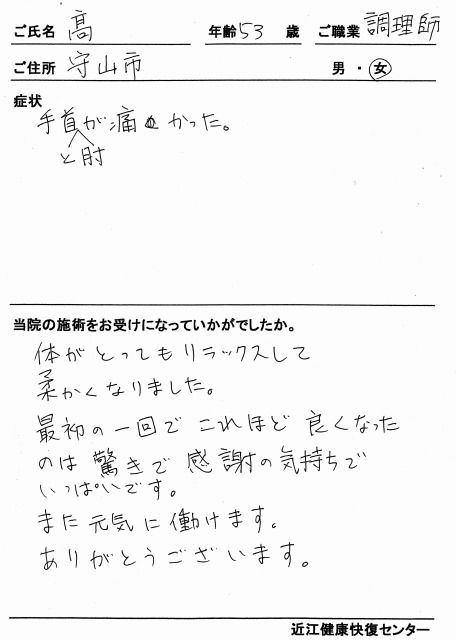 ご氏名 高 年齢 53 歳 ご職業 調理師
ご住所 守山市 男・女
症状
手首が痛かった。
と肘
当院の施術をお受けになっていかがでしたか。
体がとってもリラックスして
柔かくなりました。
最初の一回でこれほど良くなった
のは驚きで感謝の気持ちで
いっぱいです。
また元気に働けます。
ありがとうございます。
近江健康快復センター